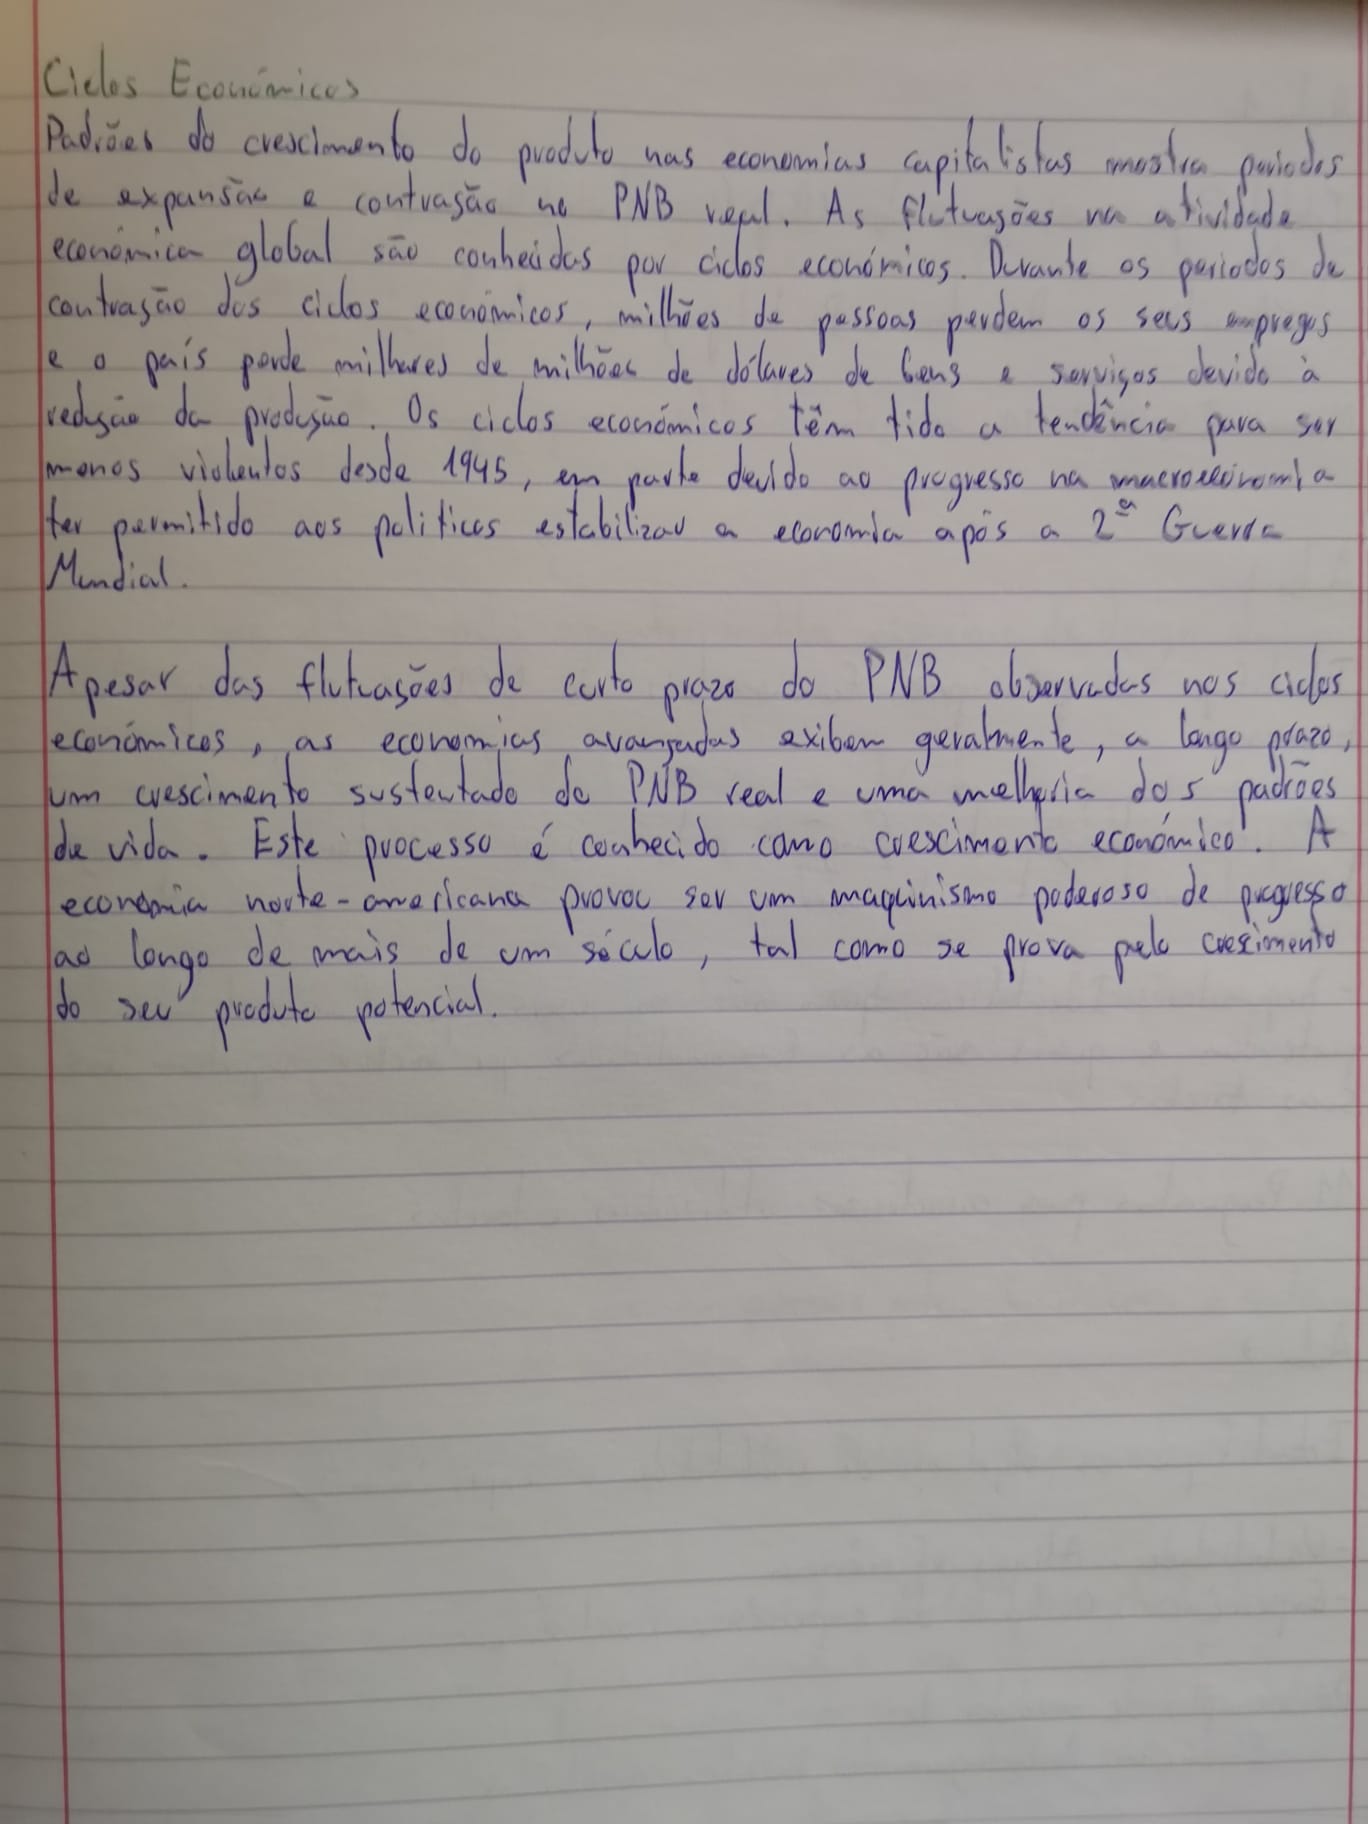 Ciclos Económicos
Padrões do crescimento do produto nas economias capitalistas mostra periodos
de expansão e contração no PNB real. As flutuações na atividade
económica global são conhecidas por ciclos económicos. Durante os periodos de
contração dos ciclos económicos, milhões de pessoas perdem os seus empregos
e o país perde milhares de milhões de dólares de bens e serviços devido à
redução da produção. Os ciclos económicos têm tido a tendência para ser
menos violentos desde 1945, em parte devido ao progresso na macroeconomia
ter permitido aos politicos estabilizar a economia após a 2ª Guerra
Mundial.
Apesar das flutuações de curto prazo do PNB observadas nos ciclos
económicos, as economias avançadas exibem geralmente, a longo prazo,
um crescimento sustentado do PNB real e uma melhoria dos padrões
de vida. Este processo é conhecido como crescimento económico. A
economia norte-americana provou ser um maquinismo poderoso de progresso
ao longo de mais de um século, tal como se prova pelo crescimento
do seu produto potencial.